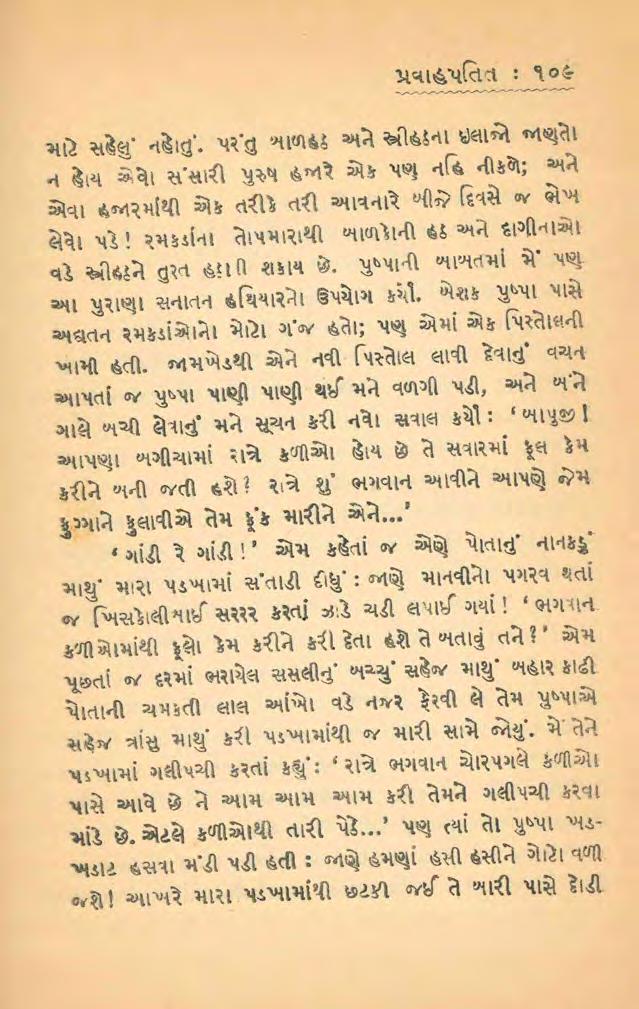 પ્રવાહપતિત : ૧૦૯
માટે સહેલું નહોતું. પરંતુ બાળહઠ અને સ્ત્રીહઠના ઇલાજો જાણતો
ન હોય એવો સંસારી પુરુષ હજારે એક પણ નહિ નીકળે; અને
એવા હજારમાંથી એક તરીકે તરી આવનારે બીજે દિવસે જ ભેખ
લેવો પડે! રમકડાંના તોપમારાથી બાળકોની હઠ અને દાગીનાઓ
વડે સ્ત્રીહઠને તુરત હઠાવી શકાય છે. પુષ્પાની બાબતમાં મેં પણ
આ પુરાણા સનાતન હથિયારનો ઉપયોગ કર્યો. બેશક પુષ્પા પાસે
અદ્યતન રમકડાંઓનો મોટો ગંજ હતો; પણ એમાં એક પિસ્તોલની
ખામી હતી. જામખેડથી એને નવી પિસ્તોલ લાવી દેવાનું વચન
આપતાં જ પુષ્પા પાણી પાણી થઈ મને વળગી પડી, અને બંને
ગાલે બચી લેવાનું મને સૂચન કરી નવો સવાલ કર્યો : ‘બાપુજી!
આપણા બગીચામાં રાત્રે કળીઓ હોય છે તે સવારમાં ફૂલ કેમ
કરીને બની જતી હશે? રાત્રે શું ભગવાન આવીને આપણે જેમ
ફુગ્ગાને ફુલાવીએ તેમ ફૂંક મારીને એને...’
‘ગાંડી રે ગાંડી!’ એમ કહેતાં જ એણે પોતાનું નાનકડું
માથું મારા પડખામાં સંતાડી દીધું : જાણે માનવીનો પગરવ થતાં
જ ખિસકોલીબાઈ સરરર કરતાં ઝાડે ચડી લપાઈ ગયાં! ‘ભગવાન
કળીઓમાંથી ફૂલો કેમ કરીને કરી દેતા હશે તે બતાવું તને?’ એમ
પૂછતાં જ દરમાં ભરાયેલ સસલીનું બચ્ચું સહેજ માથું બહાર કાઢી
પોતાની ચમકતી લાલ આંખો વડે નજર ફેરવી લે તેમ પુષ્પાએ
સહેજ ત્રાંસુ માથું કરી પડખામાંથી જ મારી સામે જોયું. મેં તેને
પડખામાં ગલીપચી કરતાં કહ્યું : ‘રાત્રે ભગવાન ચોરપગલે કળીઓ
પાસે આવે છે ને આમ આમ આમ કરી તેમને ગલીપચી કરવા
માંડે છે. એટલે કળીઓથી તારી પેઠે...’ પણ ત્યાં તો પુષ્પા ખડ-
ખડાટ હસવા મંડી પડી હતી : જાણે હમણાં હસી હસીને ગોટો વળી
જશે! આખરે મારા પડખામાંથી છટકી જઈ તે બારી પાસે દોડી